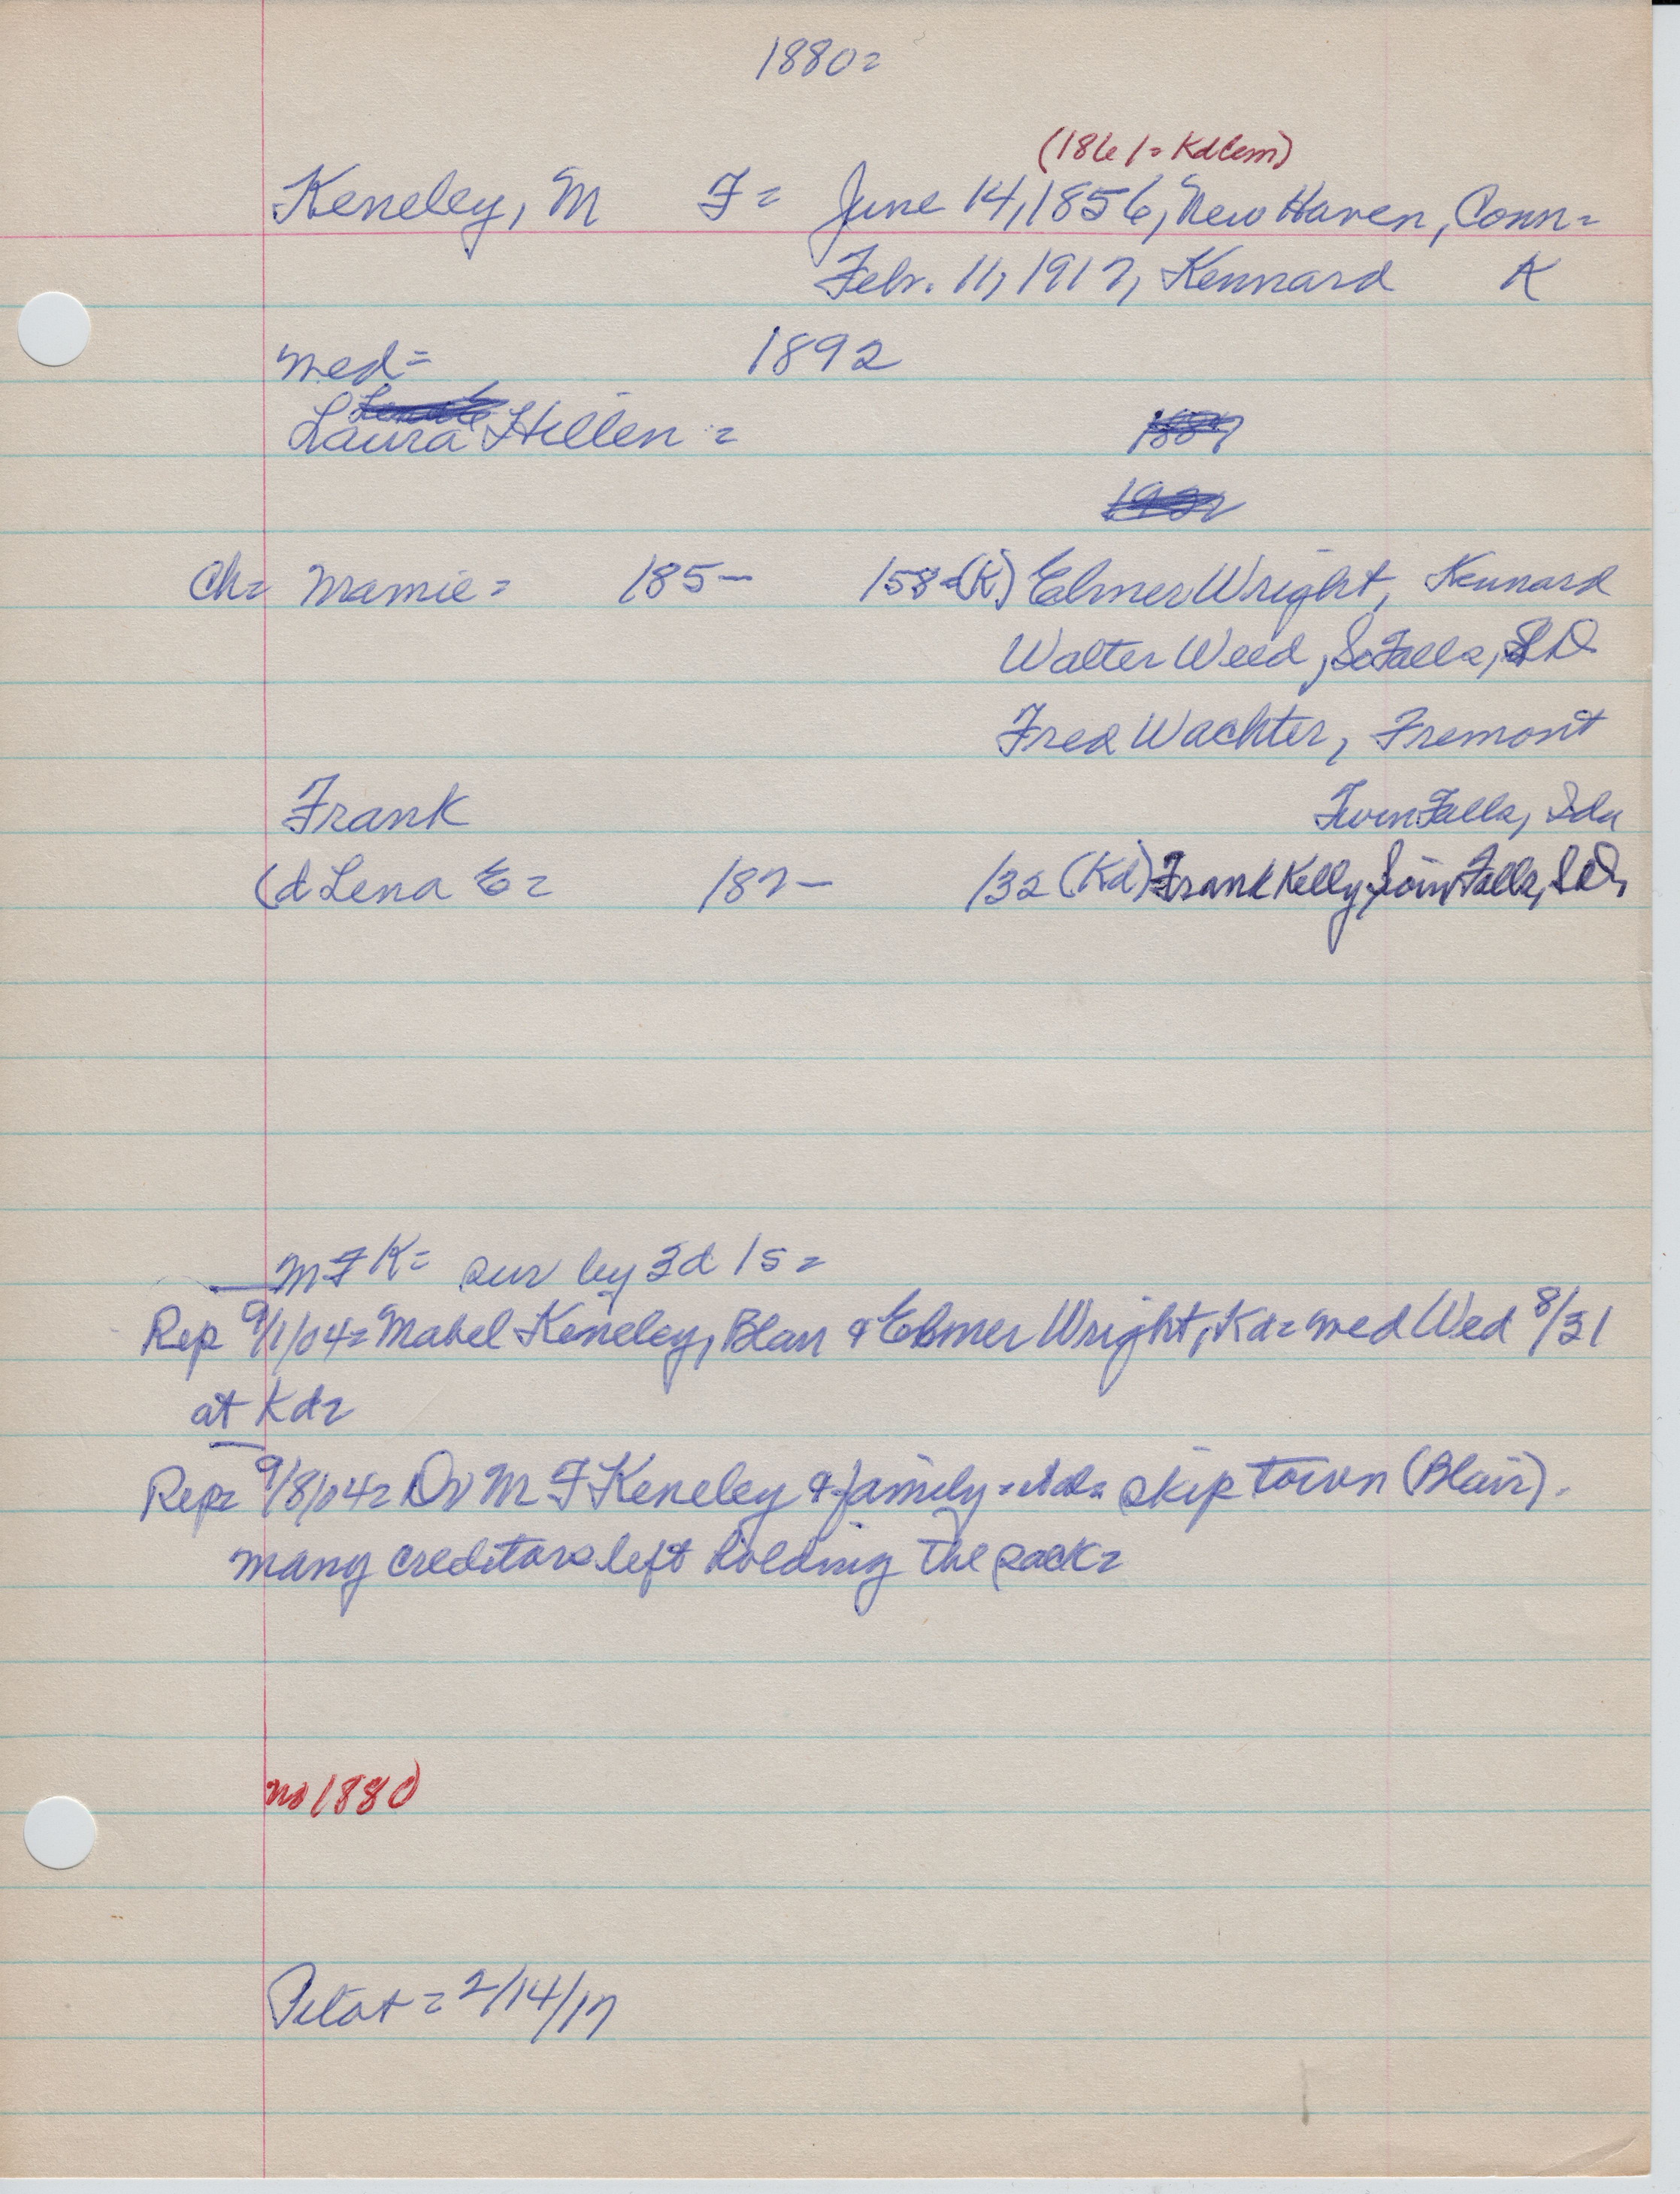 1880=
(1861= Kdcem)
Keneley, M F= June 14, 1856, New Haven, Conn=
Febr. 11, 1917, Kennard K
med= 1892
Laura Hillen =
Ch= Mamie= 185— 158=(K) Elmer Wright, Kennard
Walter Weed, So Falls, SD
Fred Wachter, Fremont
Frank Twin Falls, Ida
(d Lena E= 187— 132 (Kd) Frank Kelly, Soiux Falls, SD,
MFK= sur by 3d 1s=
Rep 9/1/04= Mabel Keneley, Blair & Elmer Wright, Kd= med Wed 8/31
at Kd=
Rep= 9/8/04= Dr M F Keneley & family = skip town (Blair).
many creditors left holding the sack=
no 1880
Pilot = 2/14/17